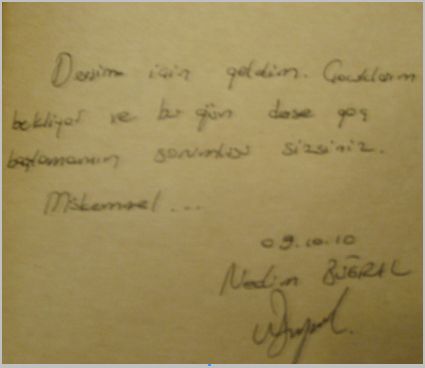 Dersim için geldim. Çocuklarım
bekliyor ve bu gün derse geç
başlamanın sorumlusu sizsiniz.
Mükemmel ...
09.10.10
Nedim